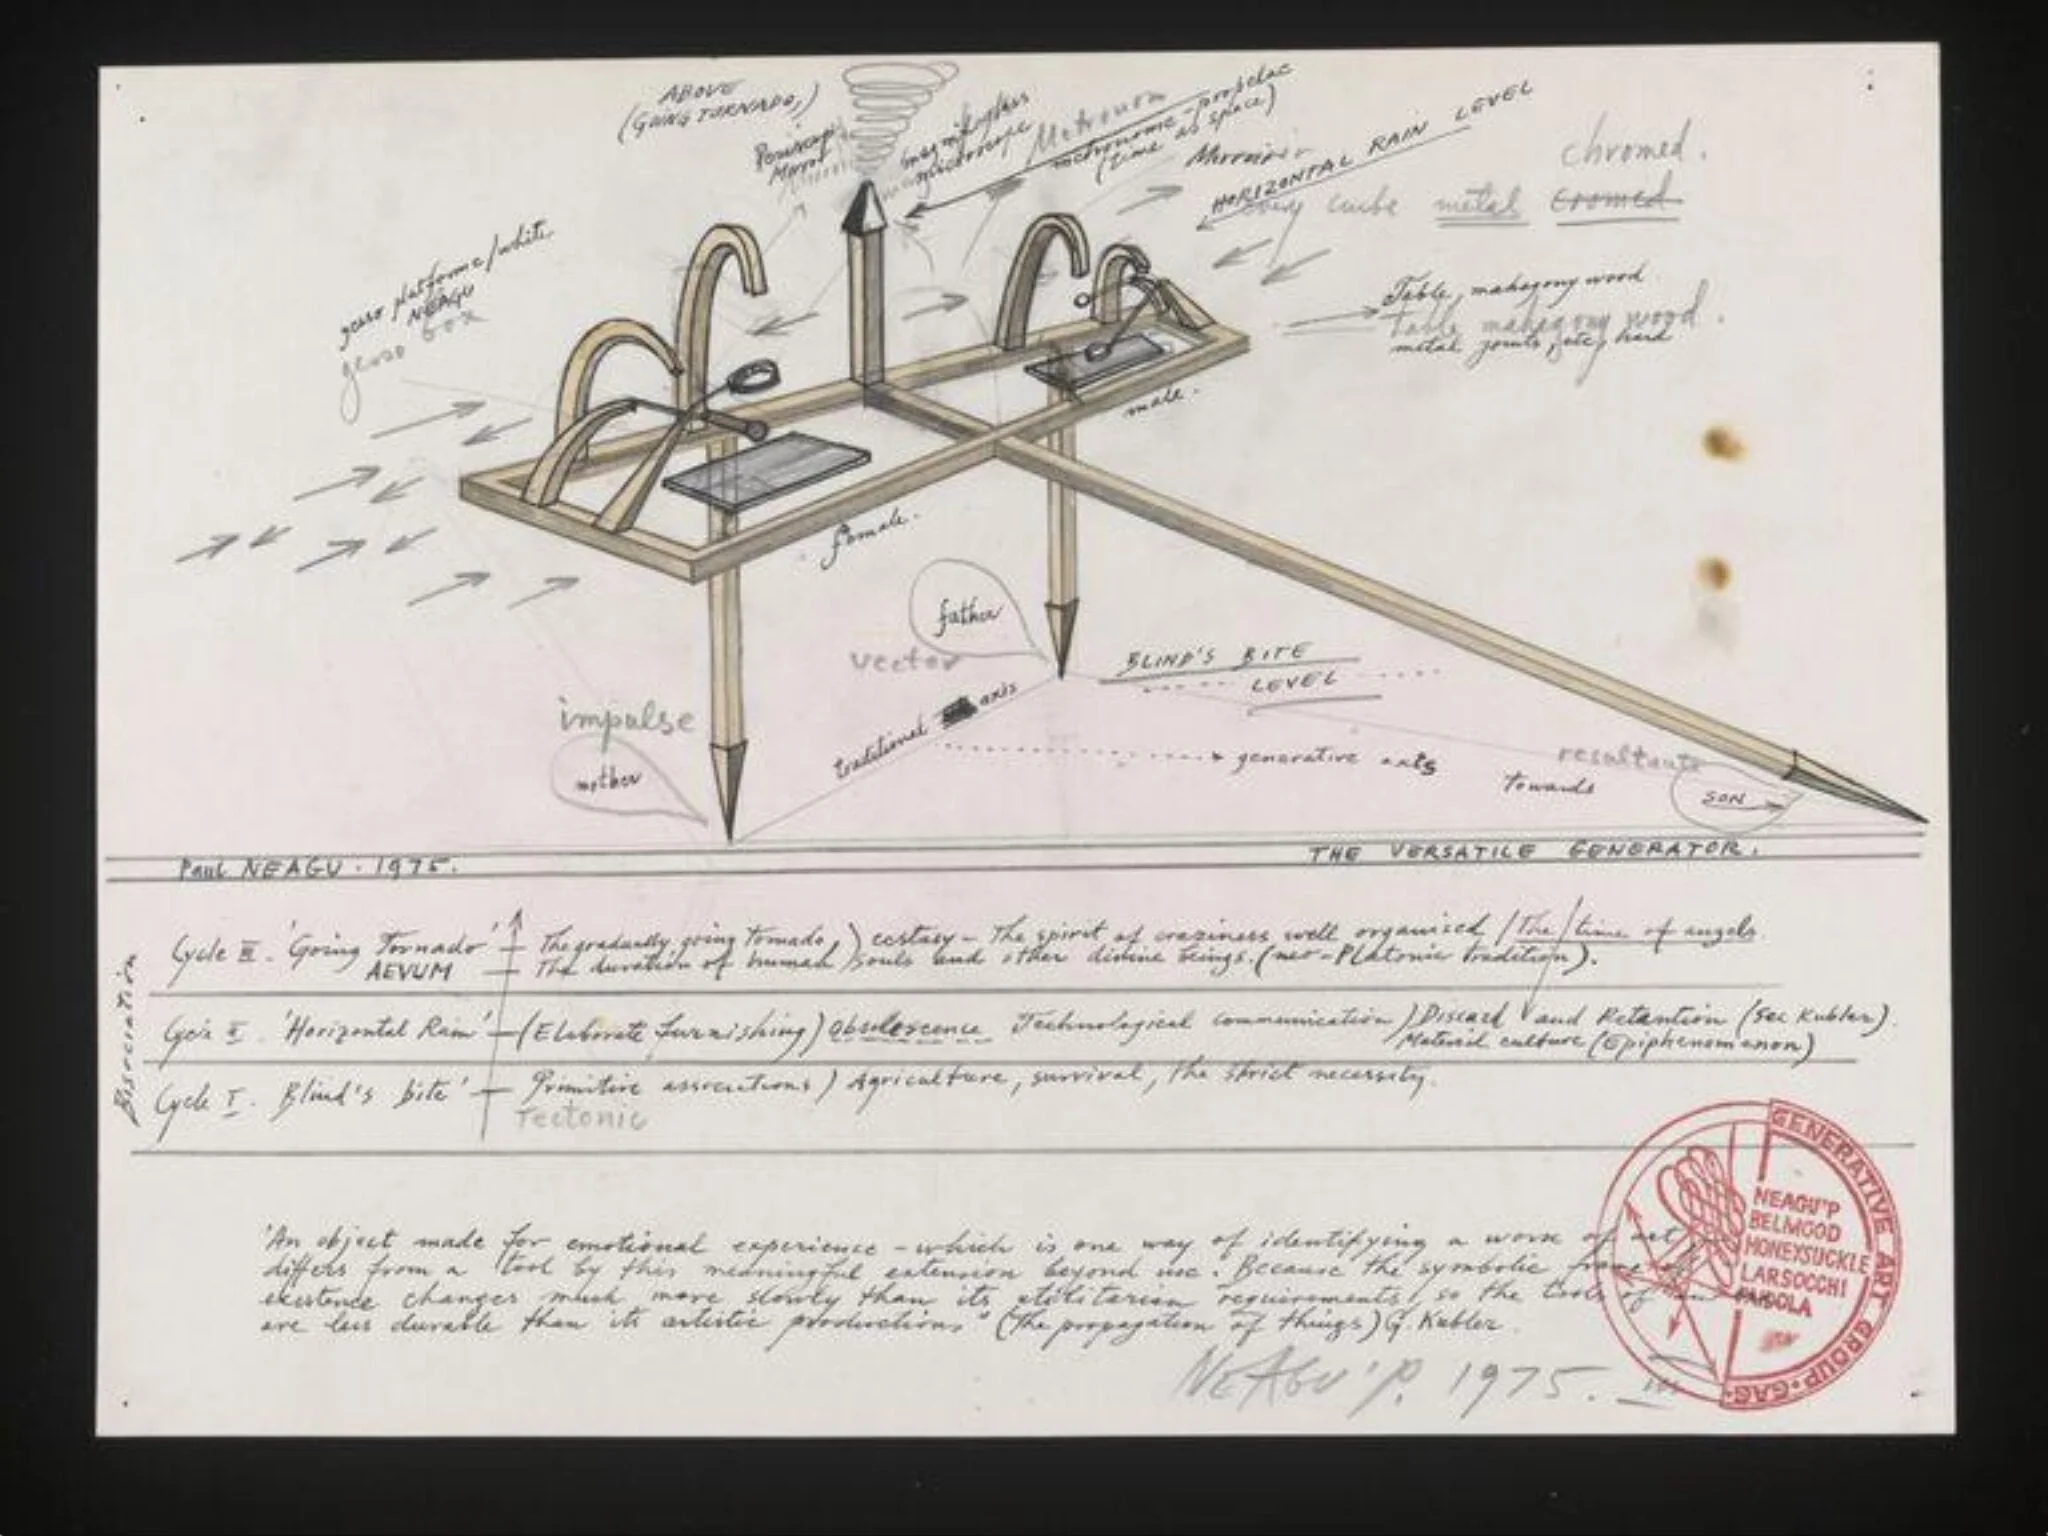 ABOVE
(GOING TORNADO,)
Periscop
Mirror
magnifyglass
microscope
Metronom
metronome - propelac
(time as space)
Mirrviver
HORIZONTAL RAIN LEVEL
chromed.
cube metal cromed
gesso platforme/white
NEAGU
gesso box
Table, mahagony wood
table mahagony wood.
metal joints, etc, hard
male.
female.
father
vector
BLIND'S BITE
LEVEL
impulse
mother
traditional axis
generative axis
resultante
Towards
SON
Paul NEAGU. 1975.
THE VERSATILE GENERATOR.
Cycle III. 'Going Tornado' The gradually going tornado,) ecstasy - The spirit of craziness well organised /The/time of angels.
AEVUM The duration of human souls and other divine beings. (neo-Platonic tradition).
II. 'Horizontal Rain' - (Elaborate furnishing) obsolescence Technological communication) Discard and Retention (see Kubler).
Material culture (Epiphenomenon)
Cycle I. Blind's bite' - Primitive associations) Agriculture, survival, the strict necessity.
Tectonic
'An object made for emotional experience - which is one way of identifying a work of art,
differs from a tool by this meaningful extension beyond use. Because the symbolic frame of
existence changes much more slowly than its utilitarian requirements, so the tools of an
are less durable than its artistic productions" (The propagation of things) G. Kubler.
NEAGU'P. 1975.
GENERATIVE ART GROUP·GAG·
NEAGU'P
BELMOOD
HONEYSUCKLE
LARSOCCHI
PAIDOLA